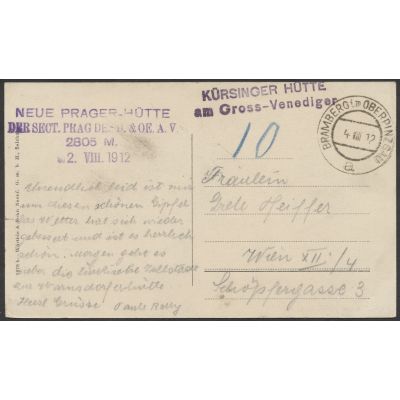 NEUE PRAGER-HÜTTE
DER SECT. PRAG DES D. & OE. A. V.
2805 M.
2. VIII. 1912
KÜRSINGER HÜTTE
am Gross-Venediger
BRAMBERG im OBERPINZGAU
4 VIII 12
a
10
leid ist mir
diesen schönen Gipfel
das Wetter hat sich wieder
gebessert und ist es herrlich
schön. Morgen geht es
über die
zur Warnsdorferhütte
Herzl. Grüsse
Fräulein
Grete Heiffer
Wien XII/4
Schöpfergasse 3